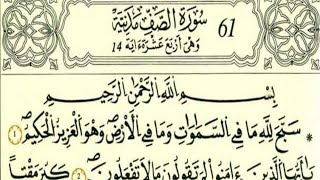 61 سُورَةُ الصَّفِّ مَدَنِيَّة
وَهِيَ أَرْبَعَ عَشْرَةَ آيَة 14
بِسْمِ اللَّهِ الرَّحْمَٰنِ الرَّحِيمِ
سَبَّحَ لِلَّهِ مَا فِي السَّمَٰوَاتِ وَمَا فِي الْأَرْضِ وَهُوَ الْعَزِيزُ الْحَكِيمُ
يَا أَيُّهَا الَّذِينَ آمَنُوا لِمَ تَقُولُونَ مَا لَا تَفْعَلُونَ كَبُرَ مَقْتًا